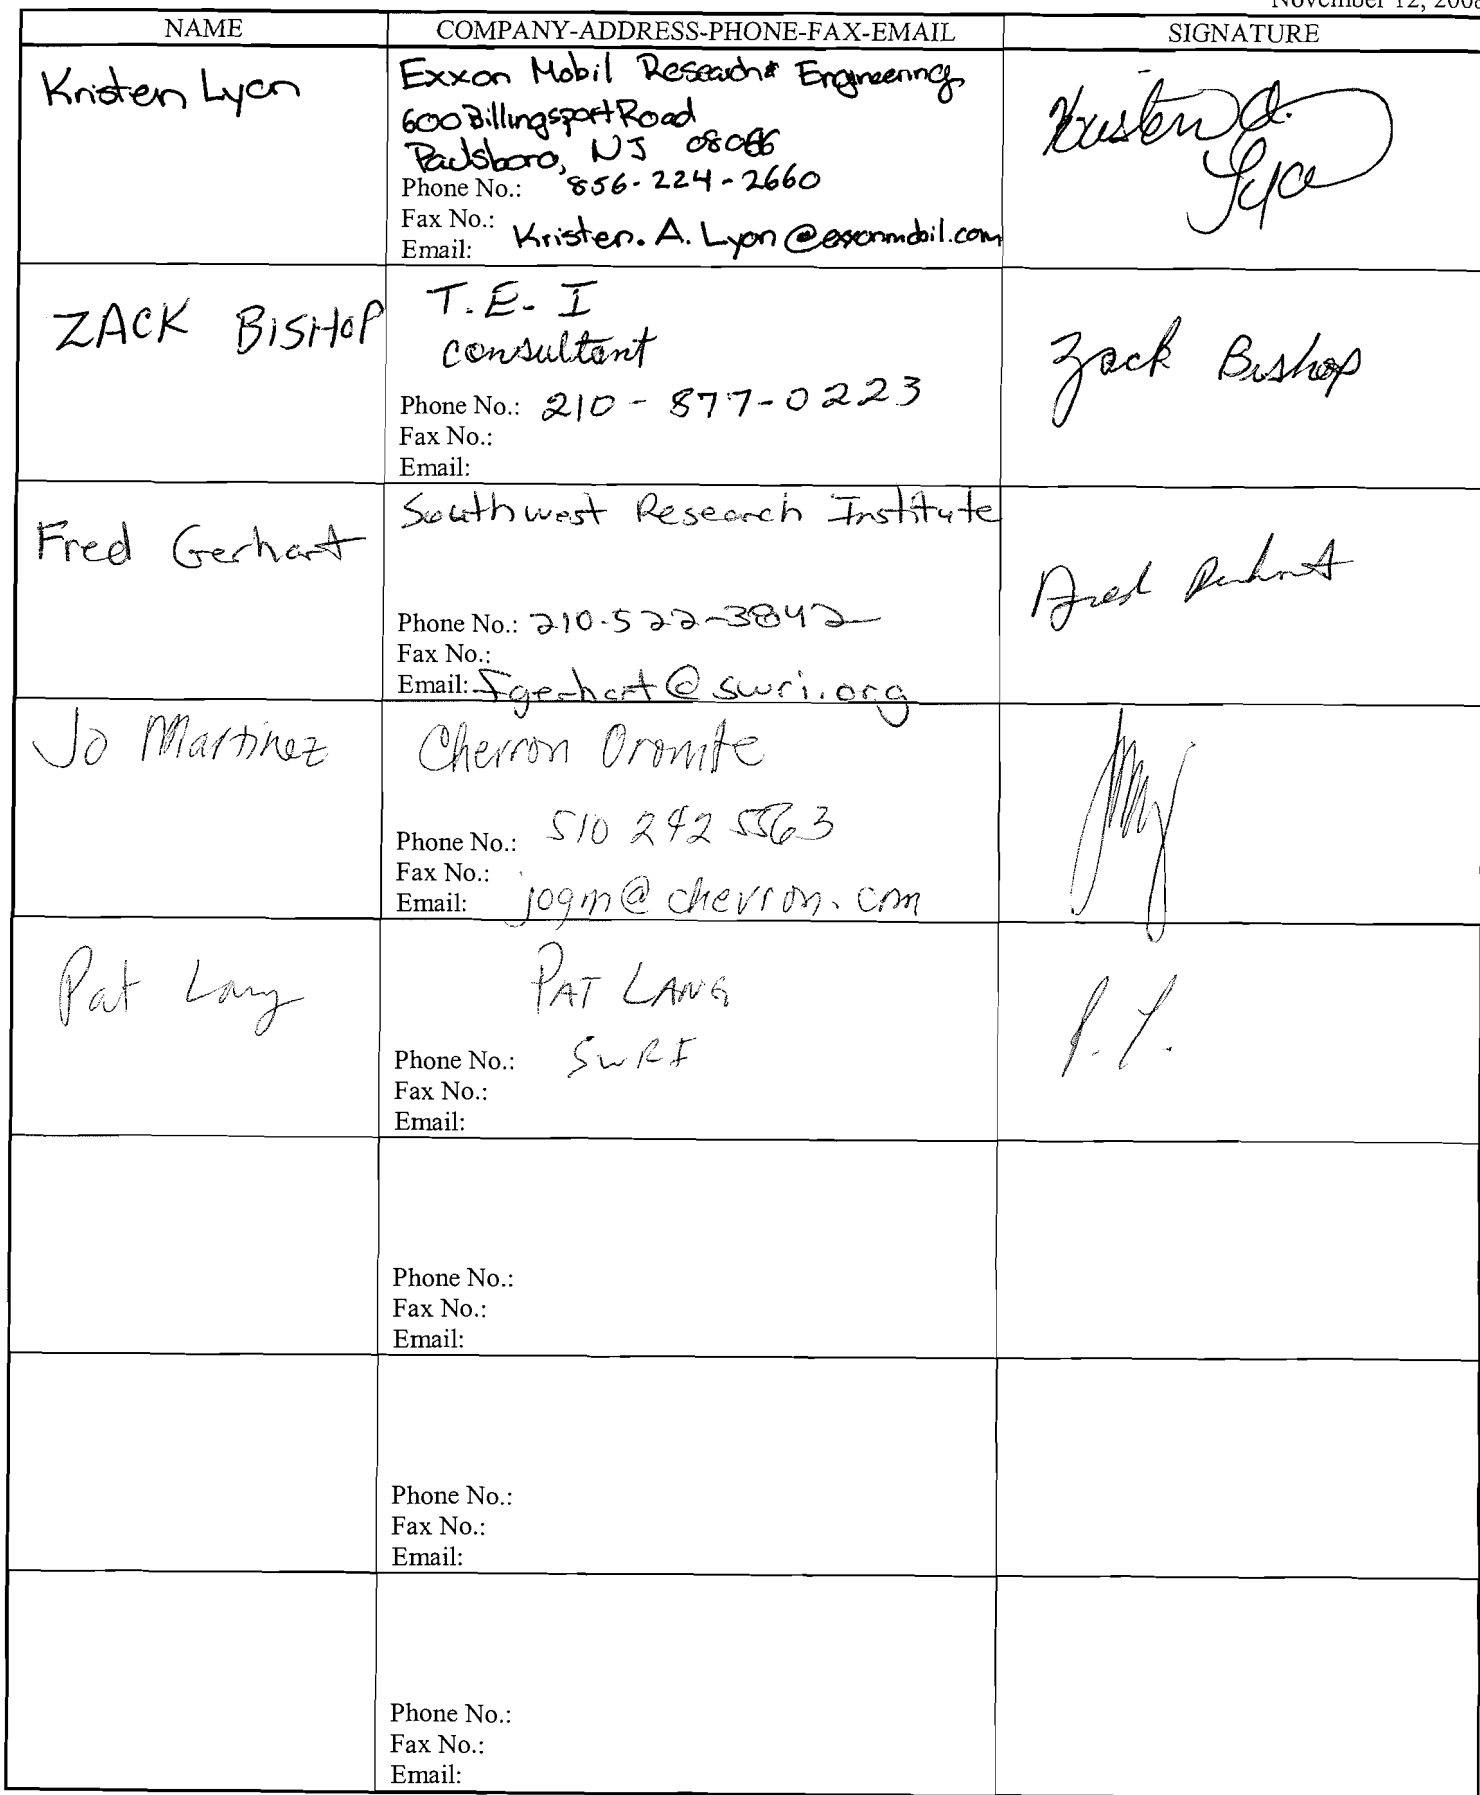 November 12, 2008
NAME COMPANY-ADDRESS-PHONE-FAX-EMAIL SIGNATURE
Kristen Lyon
Exxon Mobil Research & Engineering
600 Billingsport Road
Paulsboro, NJ 08066
Phone No.: 856-224-2660
Fax No.:
Email: Kristen.A.Lyon@exxonmobil.com
Kristen A.
Lyon
ZACK BISHOP
T.E.I
consultant
Phone No.: 210-877-0223
Fax No.:
Email:
Zack Bishop
Fred Gerhart
Southwest Research Institute
Phone No.: 210-522-3842
Fax No.:
Email: fgerhart@swri.org
Fred Gerhart
Jo Martinez
Chevron Oronite
Phone No.: 510 242 5563
Fax No.:
Email: jogm@chevron.com
Pat Lang
PAT LANG
Phone No.: SwRI
Fax No.:
Email:
P. L.
Phone No.:
Fax No.:
Email:
Phone No.:
Fax No.:
Email:
Phone No.:
Fax No.:
Email: